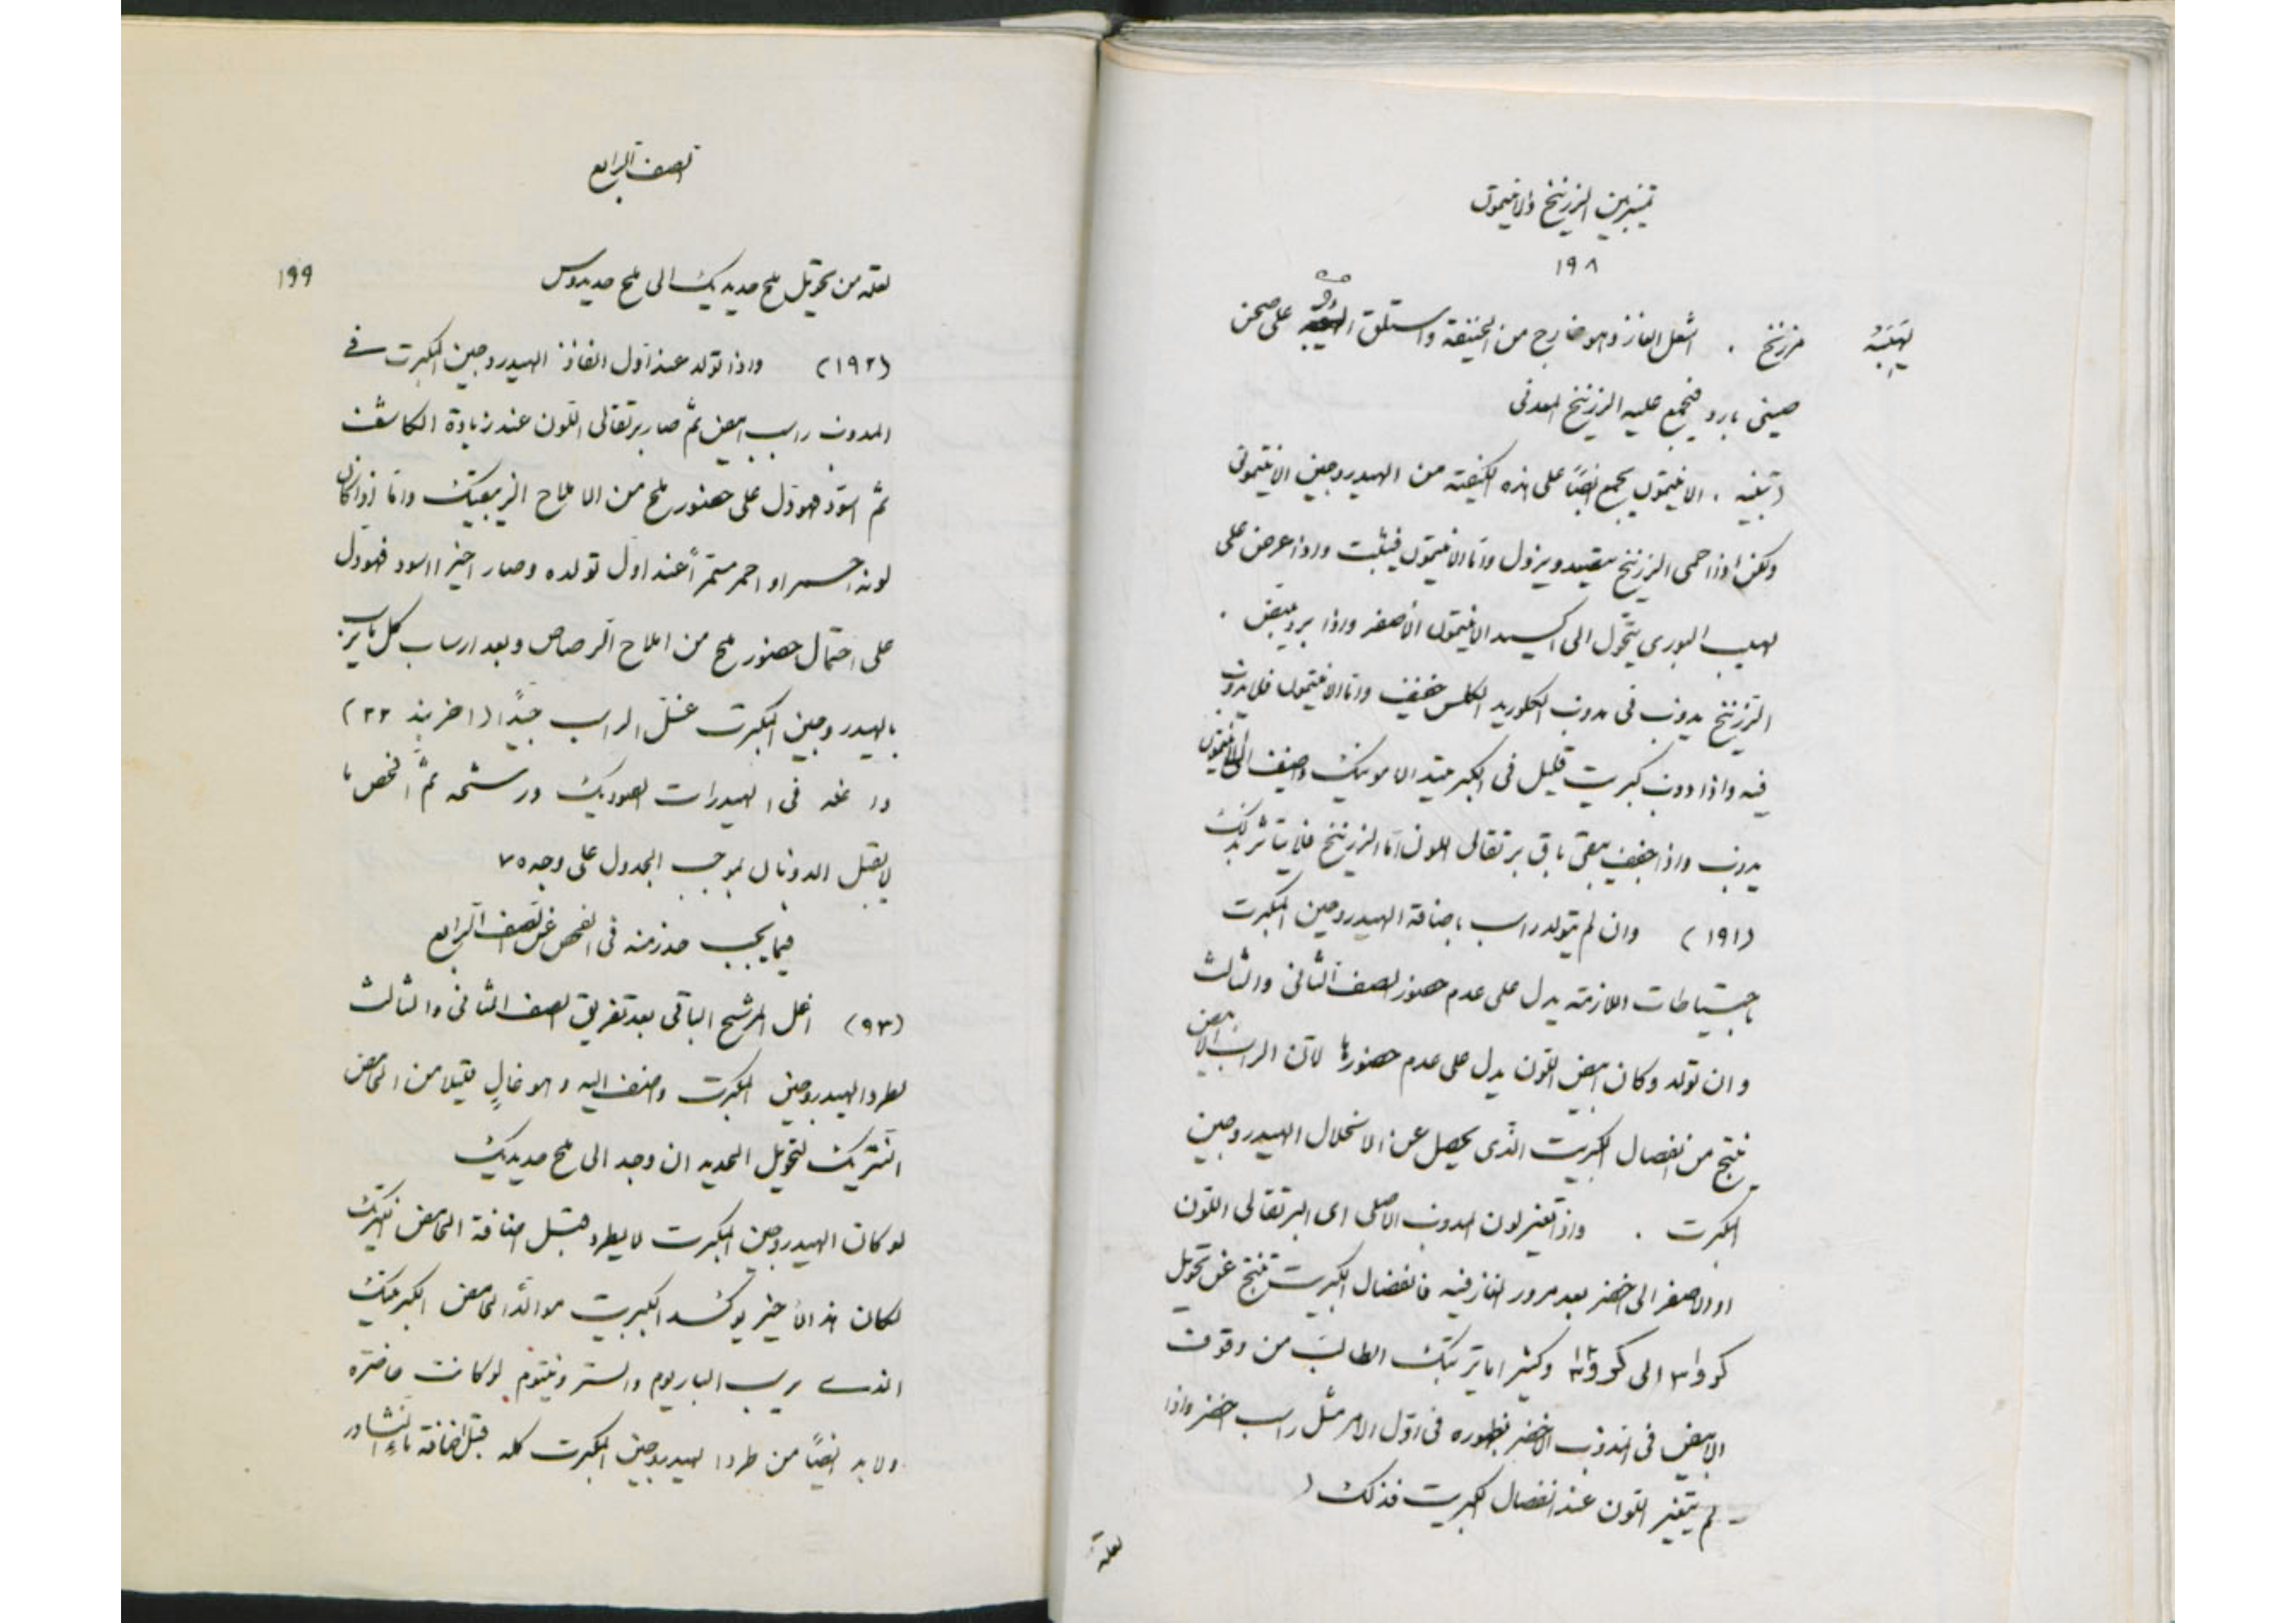 تميز بين الزرنيخ والانتيمون
١٩٨
زرنيخ . اشعل الغاز وهو خارج من الحنيفة واستلق على صحن
صيني بارد فيجمع عليه الزرنيخ المعدني
(تنبيه . الانتيمون يجمع ايضًا على هذه الكيفية من الهيدروجين الانتيموني
ولكن اذا احمى الزرنيخ يتصعد ويزول واما الانتيمون فيثبت واذا عرض على
لهيب البوري يتحول الى اكسيد الانتيمون الاصفر واذا برد يبيض .
الزرنيخ يذوب في مذوب الكلوريد الكلس خفيف واما الانتيمون فلا يذوب
فيه واذا ذوب كبريت قليل في الكبرتيد الامونيك واضيف الى الانتيمون
يذوب واذا جفف يبقى باق برتقالي اللون اما الزرنيخ فلا يتاثر بذلك
(١٩١) وان لم يتولد راسب باضافة الهيدروجين المكبرت
باحتياطات اللازمة يدل على عدم حضور الصف الثاني والثالث
وان تولد وكان ابيض اللون يدل على عدم حضورها لان الراسب الابيض
ينتج من انفصال الكبريت الذي يحصل عن الانحلال الهيدروجين
المكبرت . واذا تغير لون المذوب الاصلي اي البرتقالي اللون
او الاصفر الى اخضر بعد مرور الغاز فيه فانفصال الكبريت ينتج عن تحويل
كر وا٣ الى كر و٣ وكثيرا ما يرتبك الطالب من وقوف
الابيض في المذوب الاخضر بظهوره في اول الامر مثل راسب اخضر واذا
لم يتغير اللون عند انفصال الكبريت فذلك (
لعله
الصف الرابع
١٩٩
لعله من تحويل ملح حديديك الى ملح حديدوس
(١٩٢) واذا تولد عند اول انفاذ الهيدروجين المكبرت في
المذوب راسب ابيض ثم صار برتقالي اللون عند زيادة الكاشف
ثم اسود فهو دل على حضور ملح من الاملاح الزيبقيك واما اذا كان
لونه احمر او احمر مستمرا عند اول تولده وصار اخيرا اسود فهو دل
على احتمال حضور ملح من املاح الرصاص وبعد ارساب كل ما يرسب
بالهيدروجين المكبرت غسل الراسب جيدًا (اخر بند ٢٢)
وا غله في الهيدرات الصوديك ورشحه ثم افحص ما
لا يقبل الذوبان بموجب الجدول على وجه ٧٥
فيما يجب حذر منه في الفحص عن الصف الرابع
(٩٣) اغل المرشح الباقي بعد تفريق الصف الثاني والثالث
لطرد الهيدروجين المكبرت واضف اليه وهو غالٍ قليلا من الحامض
النتريك لتحويل الحديد ان وجد الى ملح حديديك
لو كان الهيدروجين المكبرت لا يطرد قبل اضافة الحامض نيتريك
لكان هذا الاخير يوكسد الكبريت مولدًا الحامض الكبرتيك
الذي يرسب الباريوم والسترونتيوم لو كانت حاضرة
ولا بد ايضًا من طرد الهيدروجين المكبرت كله قبل اضافة ماء النشادر